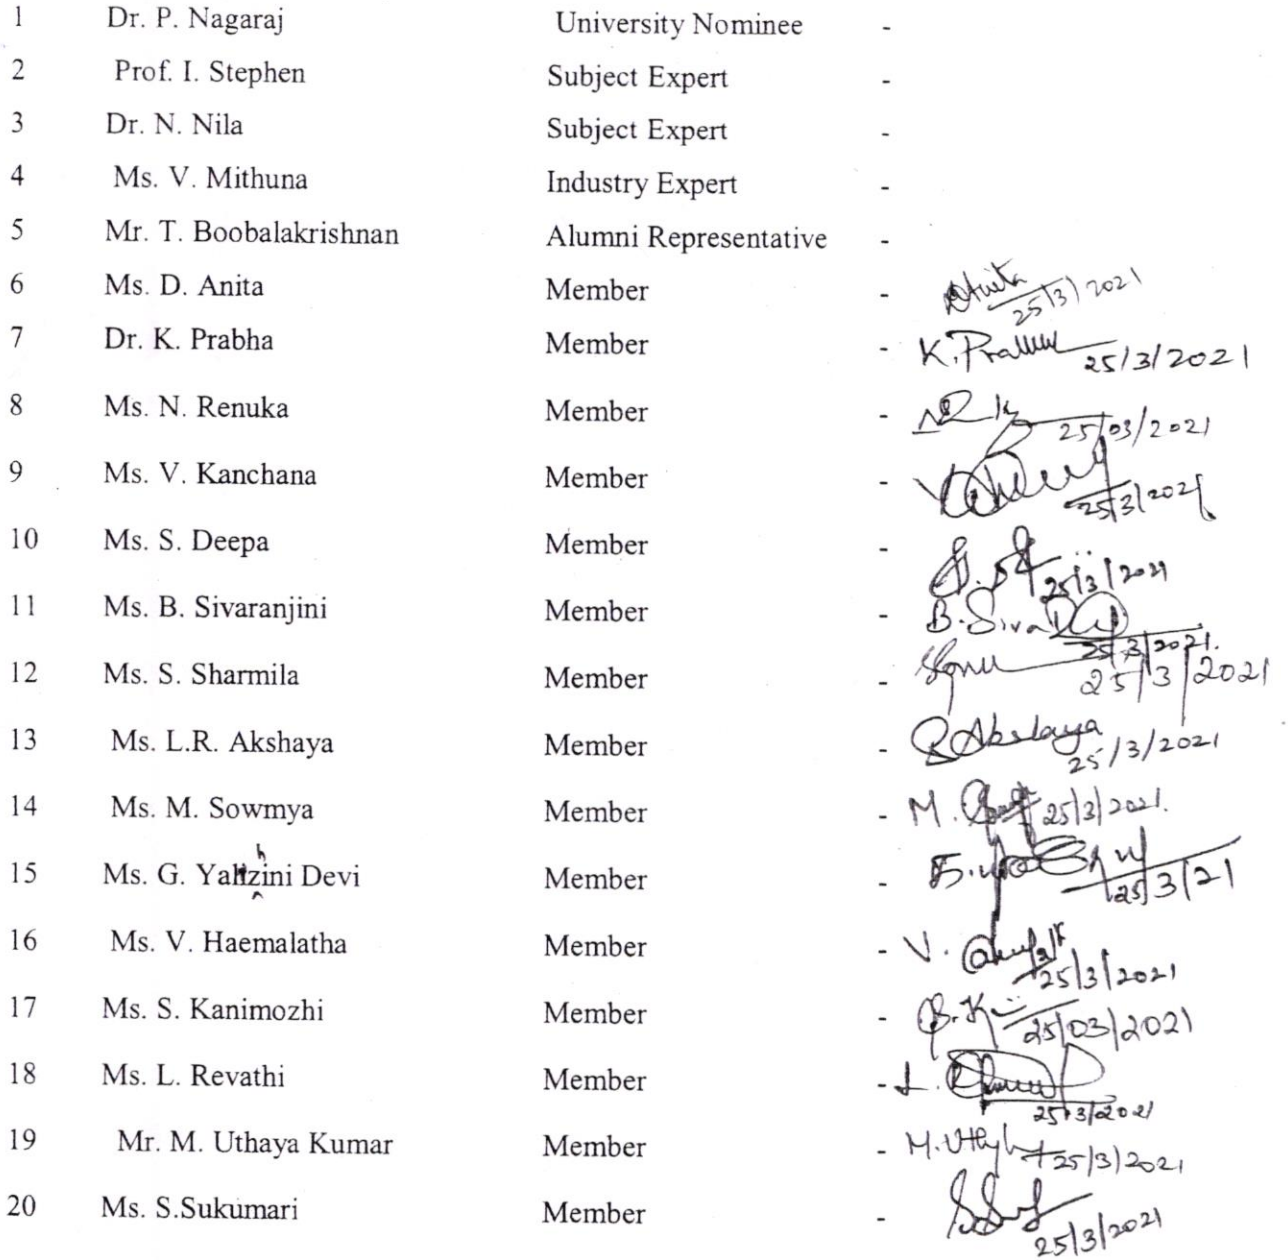 1 Dr. P. Nagaraj University Nominee -
2 Prof. I. Stephen Subject Expert -
3 Dr. N. Nila Subject Expert -
4 Ms. V. Mithuna Industry Expert -
5 Mr. T. Boobalakrishnan Alumni Representative -
6 Ms. D. Anita Member - 25/3/2021
7 Dr. K. Prabha Member - K. 25/3/2021
8 Ms. N. Renuka Member - 25/03/2021
9 Ms. V. Kanchana Member - 25/3/2021
10 Ms. S. Deepa Member - 25/3/2021
11 Ms. B. Sivaranjini Member - B. 25/3/2021.
12 Ms. S. Sharmila Member - 25/3/2021
13 Ms. L.R. Akshaya Member - Akshaya 25/3/2021
14 Ms. M. Sowmya Member - M. 25/3/2021.
15 Ms. G. Yahzini Devi Member - 25/3/21
16 Ms. V. Haemalatha Member - V. 25/3/2021
17 Ms. S. Kanimozhi Member - 25/03/2021
18 Ms. L. Revathi Member - L. 25/3/2021
19 Mr. M. Uthaya Kumar Member - M. 25/3/2021
20 Ms. S.Sukumari Member - 25/3/2021